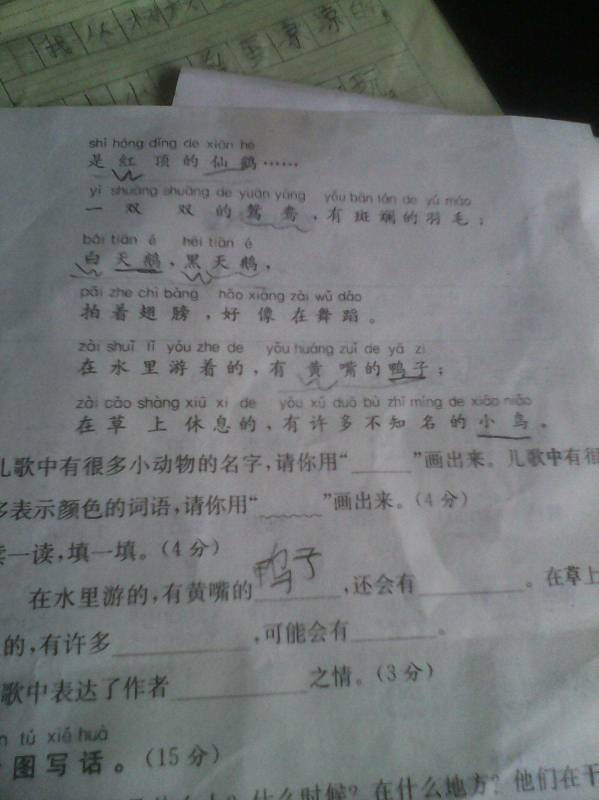 shì hóng dǐng de xiān hè
是 红 顶 的 仙 鹤……
yì shuāng shuāng de yuān yāng yǒu bān lán de yǔ máo
一 双 双 的 鸳 鸯,有 斑 斓 的 羽 毛;
bái tiān é hēi tiān é
白 天 鹅,黑 天 鹅,
pāi zhe chì bǎng hǎo xiàng zài wǔ dǎo
拍 着 翅 膀,好 像 在 舞 蹈。
zài shuǐ lǐ yóu zhe de yǒu huáng zuǐ de yā zi
在 水 里 游 着 的,有 黄 嘴 的 鸭 子;
zài cǎo shàng xiū xi de yǒu xǔ duō bù zhī míng de xiǎo niǎo
在 草 上 休 息 的,有 许 多 不 知 名 的 小 鸟。
儿歌中有很多小动物的名字,请你用“______”画出来。儿歌中有很
多表示颜色的词语,请你用“______”画出来。(4分)
读一读,填一填。(4分)
在水里游的,有黄嘴的鸭子,还会有______。在草上
的,有许多______,可能会有______。
歌中表达了作者______之情。(3分)
tú xiě huà
图 写 话。(15分)
什么时候?在什么地方?他们在干